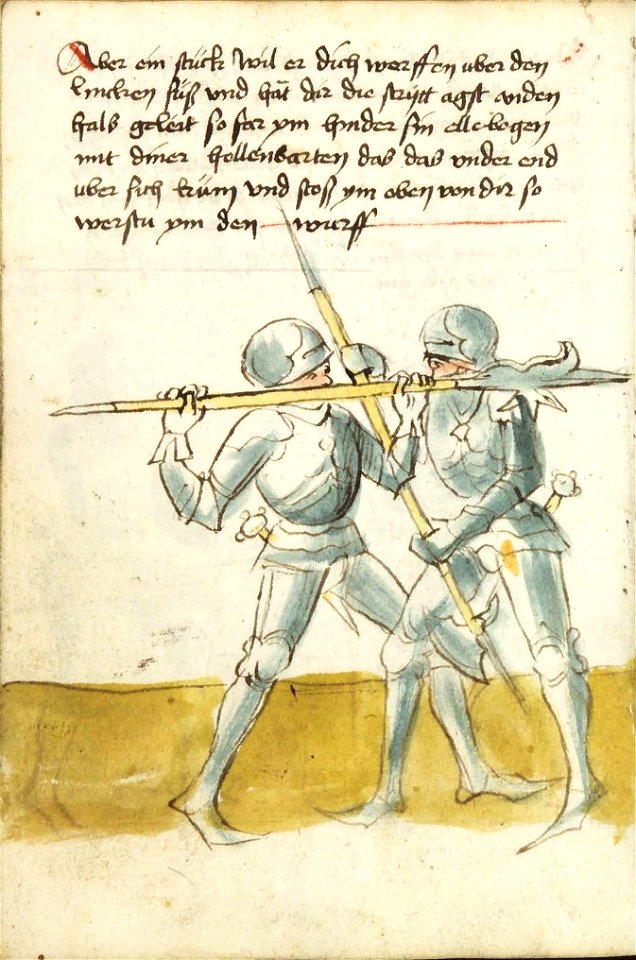 Aber ein stuck Wil er dich werffen uber den
lincken fuß vnd hät dir die strytt agst an den
hals geleit so far ym hinder sin ellebogen
mit diner hellenbarten das das vnder end
uber sich kum vnd stoss ym oben von dir so
werstu ym den wurff